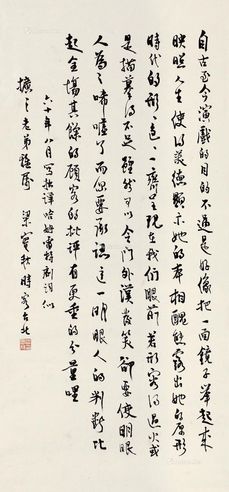 自古至今演戲的目的不過是好像把一面鏡子舉起來
映照人生使得美德顯示她的本相醜態露出她的原形
時代的形、色、一齊呈現在我們眼前若形容得過火或
是描摹得不足雖然可以令門外漢發笑卻要使明眼
人為之唏噓了而你要承認這一明眼人的判斷比
起全場其餘的顧客的批評有更重的分量哩
六十年八月寫拙譯哈姆雷特劇詞似
擴之老弟雅屬 梁實秋時客台北